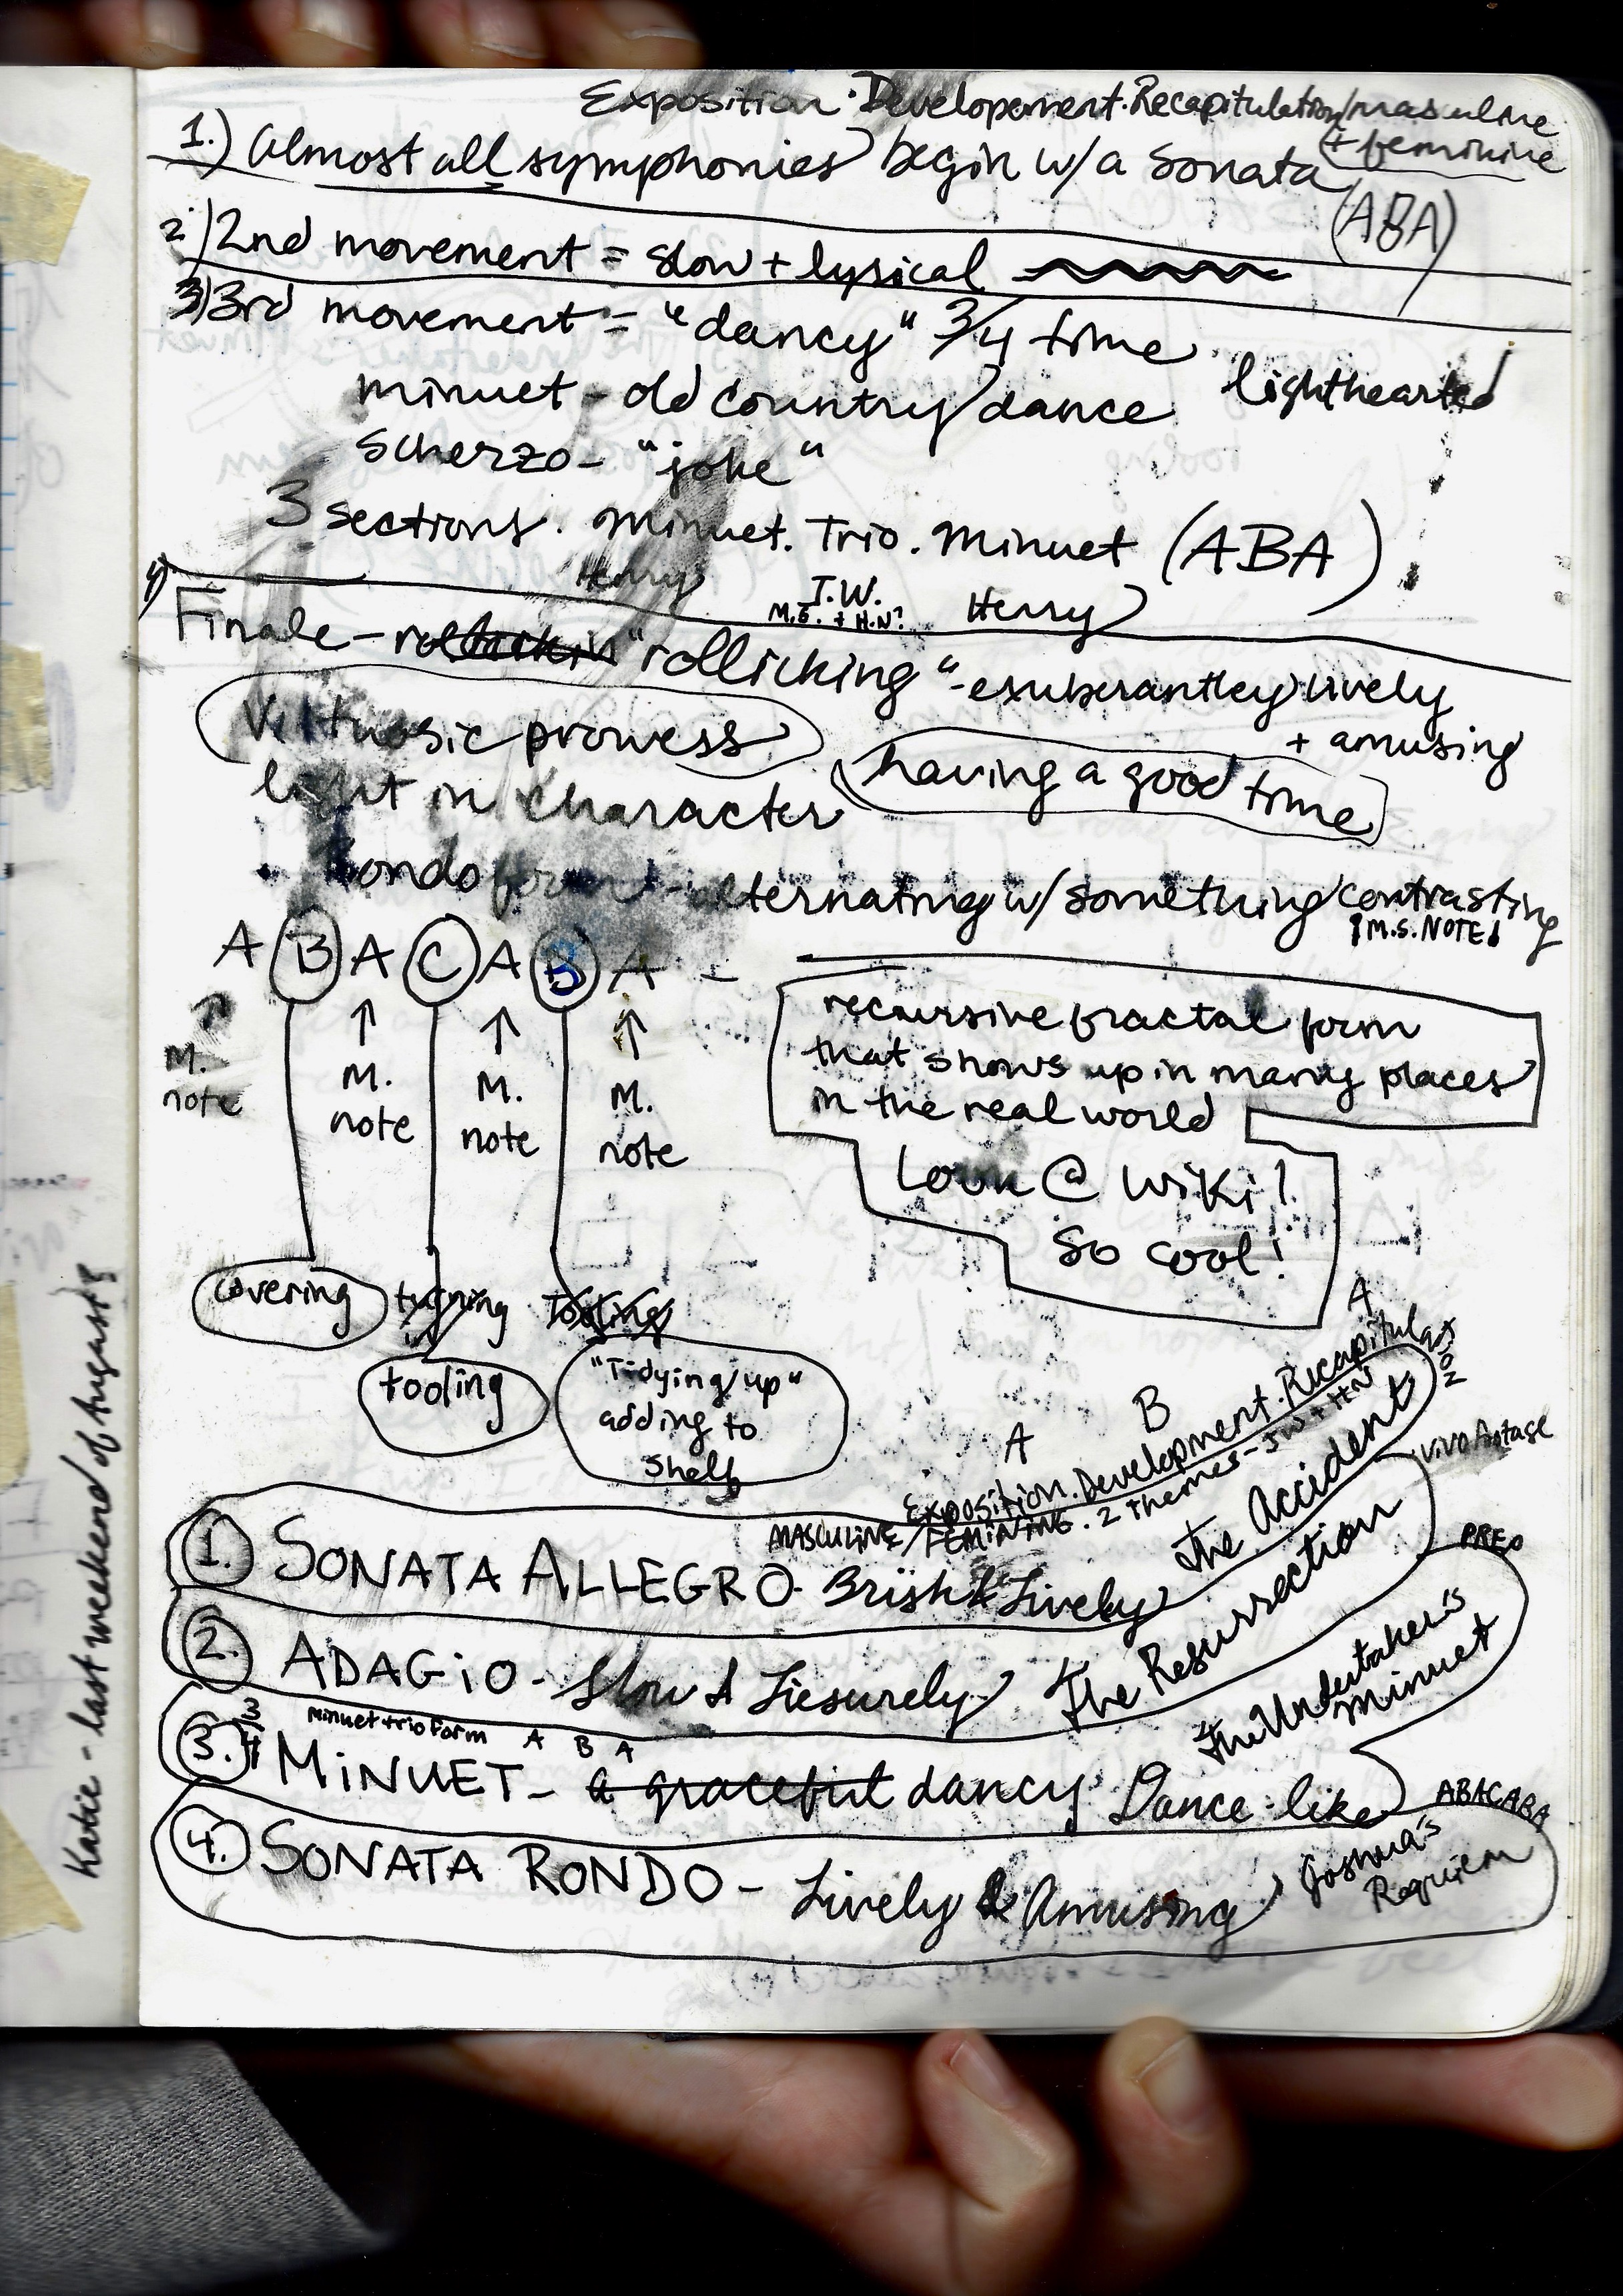 Exposition · Developement · Recapitulation/masculine
+ feminine
1.) Almost all symphonies begin w/ a Sonata
(ABA)
2.) 2nd movement = slow + lyrical
3) 3rd movement = "dancy" 3/4 time
lighthearted
minuet - old country dance
Scherzo - "joke"
3 sections. Minuet. Trio. Minuet (ABA)
Henry J.W. Henry
M.S. + H.N?
4) Finale - "rollicking" - exuberantley lively
+ amusing
Virtuosic prowess
having a good time
light in character
Rondo form - alternating w/ something contrasting
M.S. NOTE
A B A C A B A -
M. note
M. note
M. note
M. note
recursive fractal form
that shows up in many places
in the real world
Look @ WiKi!
So cool!
covering
tooling
"Tidying up"
adding to
shelf
Katie - last weekend of August?
A B A
Exposition. Development. Recapitulation
MASCULINE/FEMININE. 2 themes - JW + HN
1. SONATA ALLEGRO - Brisk & Lively The Accident
VIVO footage
2. ADAGiO - Slow & Liesurely The Resurrection
PRE
3. 3/4 MiNUET - a graceful dancy Dance-like The Undertaker's minuet
Minuet trio form A B A
ABACABA
4. SONATA RONDO - Lively & Amusing Joshua's Requiem